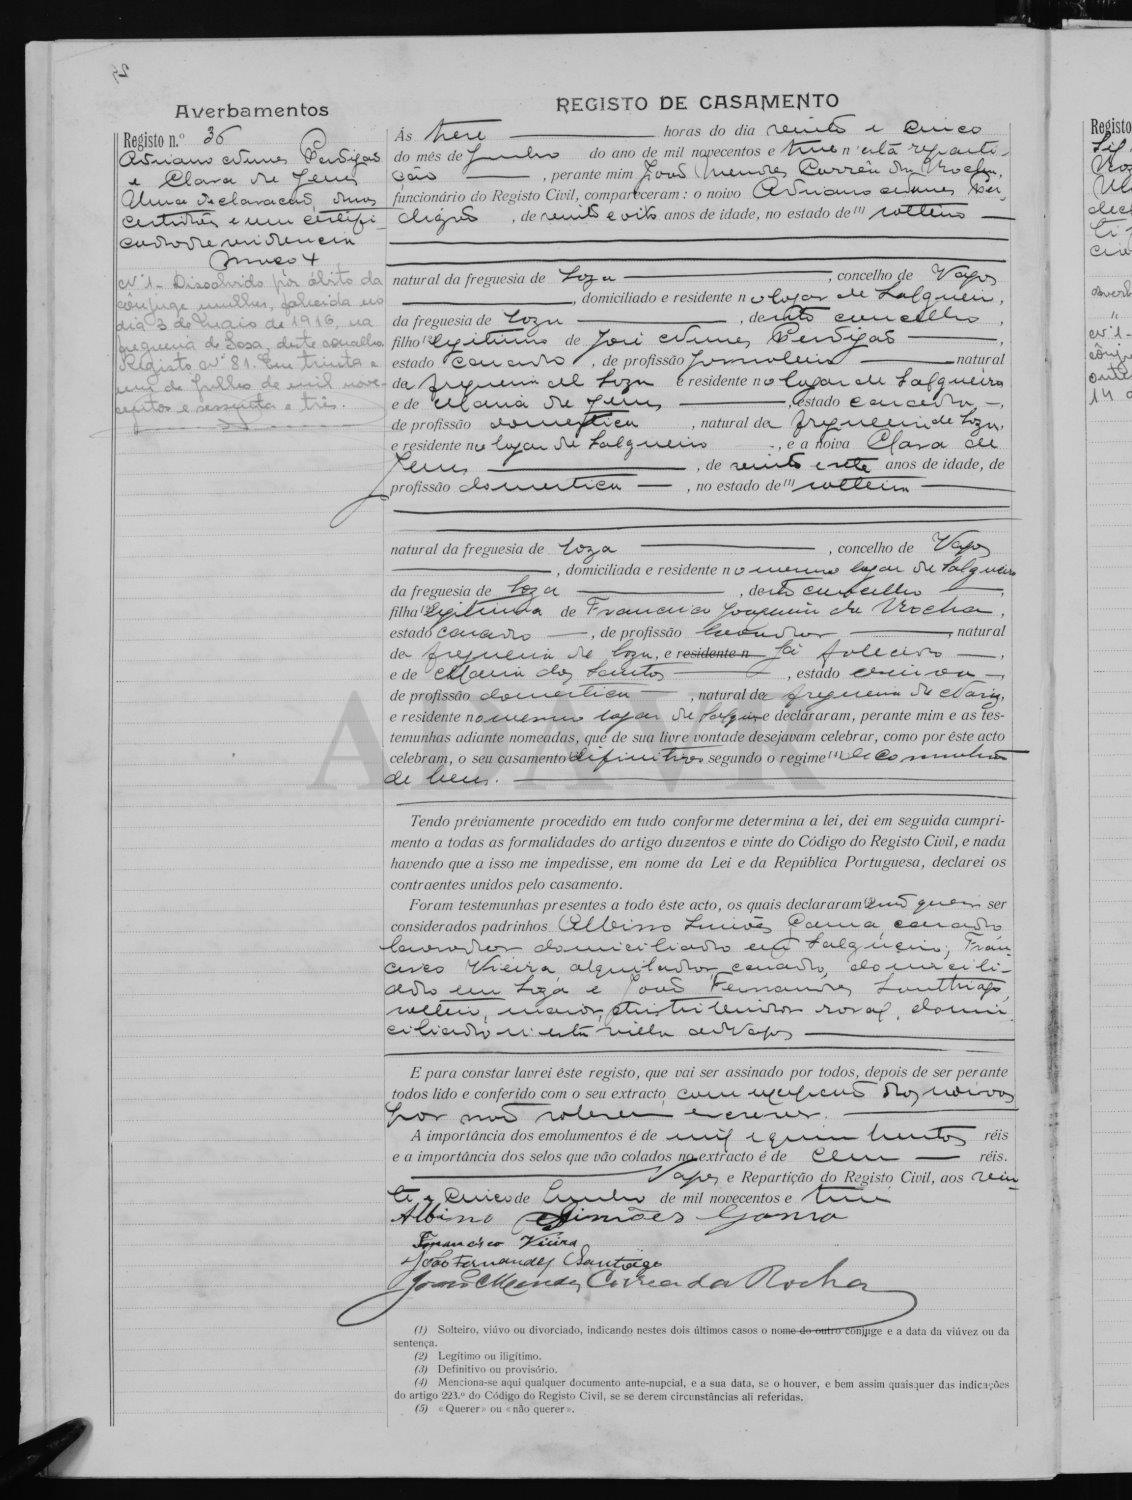 Averbamentos
Registo n.º 36
Adriano Nunes Perdigão
e Clara de Jesus
Uma declaração, duas
certidões e um certifi-
cado de residencia
Maço 4
Nº 1 - Dissolvido por óbito da
cônjuge mulher, falecida no
dia 3 de Maio de 1916, na
freguesia de Sosa, deste concelho.
Registo nº 81. Em trinta e
um de Julho de mil nove-
centos e sessenta e três.
REGISTO DE CASAMENTO
Ás treze horas do dia vinte e cinco
do mês de Junho do ano de mil novecentos e treze n'esta reparti-
ção, perante mim João Mendes Corrêa da Rocha,
funcionário do Registo Civil, compareceram: o noivo Adriano Nunes Per-
digão, de vinte e oito anos de idade, no estado de (1) solteiro
natural da freguesia de Soza, concelho de Vagos
, domiciliado e residente no logar de Salgueiro,
da freguesia de Soza, deste concelho,
filho (2) legitimo de José Nunes Perdigão,
estado casado, de profissão jornaleiro natural
da freguesia de Soza e residente no logar de Salgueiro
e de Maria de Jesus, estado casada,
de profissão domestica, natural da freguesia de Soza,
e residente no logar de Salgueiro, e a noiva Clara de
Jesus, de vinte e sete anos de idade, de
profissão domestica, no estado de (1) solteira
natural da freguesia de Soza, concelho de Vagos
, domiciliada e residente no mesmo logar de Salgueiro
da freguesia de Soza, deste concelho,
filha (2) legitima de Francisco Joaquim da Rocha,
estado casado, de profissão lavrador, natural
da freguesia de Soza, e residente n já falecido,
e de Maria dos Santos, estado viuva,
de profissão domestica, natural da freguesia de Nariz,
e residente no mesmo logar de Salgueiro e declararam, perante mim e as tes-
temunhas adiante nomeadas, que de sua livre vontade desejavam celebrar, como por êste acto
celebram, o seu casamento (3) difinitivo segundo o regime (4) de comunhão
de bens.
Tendo préviamente procedido em tudo conforme determina a lei, dei em seguida cumpri-
mento a todas as formalidades do artigo duzentos e vinte do Código do Registo Civil, e nada
havendo que a isso me impedisse, em nome da Lei e da República Portuguesa, declarei os
contraentes unidos pelo casamento.
Foram testemunhas presentes a todo êste acto, os quais declararam (5) não querer ser
considerados padrinhos Albino Simões Gama, casado
lavrador domiciliado em Salgueiro; Fran-
cisco Vieira, alquilador, casado, domicili-
ado em Soza e João Fernandes Santhiago,
solteiro, maior, distribuidor rural, domi-
ciliado n'esta villa de Vagos
E para constar lavrei êste registo, que vai ser assinado por todos, depois de ser perante
todos lido e conferido com o seu extracto, com excepção dos noivos
por não saberem escrever.
A importância dos emolumentos é de mil e quinhentos réis
e a importância dos selos que vão colados no extracto é de cem réis.
Vagos e Repartição do Registo Civil, aos vin-
te e cinco de Junho de mil novecentos e treze
Albino Simões Gama
Francisco Vieira
João Fernandes Santiago
João Mendes Correa da Rocha
(1) Solteiro, viúvo ou divorciado, indicando nestes dois últimos casos o nome do outro conjuge e a data da viúvez ou da
sentença.
(2) Legítimo ou iligítimo.
(3) Definitivo ou provisório.
(4) Menciona-se aqui qualquer documento ante-nupcial, e a sua data, se o houver, e bem assim quaisquer das indicações
do artigo 223.º do Código do Registo Civil, se se derem circunstâncias ali referidas.
(5) «Querer» ou «não querer».
ADAVR
Registo